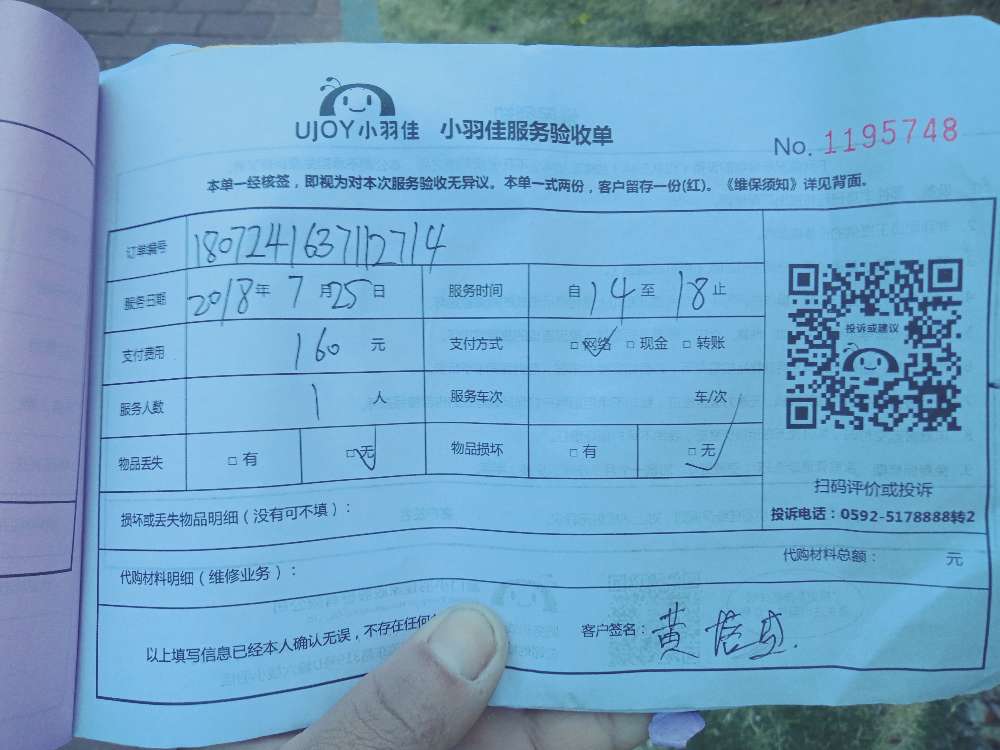 UJOY小羽佳 小羽佳服务验收单
No. 1195748
本单一经核签，即视为对本次服务验收无异议。本单一式两份，客户留存一份(红)。《维保须知》详见背面。
订单编号 1807241637112714
服务日期 2018年 7月25日 服务时间 自14至18止
支付费用 160 元 支付方式 □网络 □现金 □转账
投诉或建议
服务人数 1 人 服务车次 车/次
物品丢失 □有 □无 物品损坏 □有 □无
扫码评价或投诉
损坏或丢失物品明细（没有可不填）：
投诉电话：0592-5178888转2
代购材料明细（维修业务）：
代购材料总额： 元
以上填写信息已经本人确认无误，不存在任何
客户签名：黄